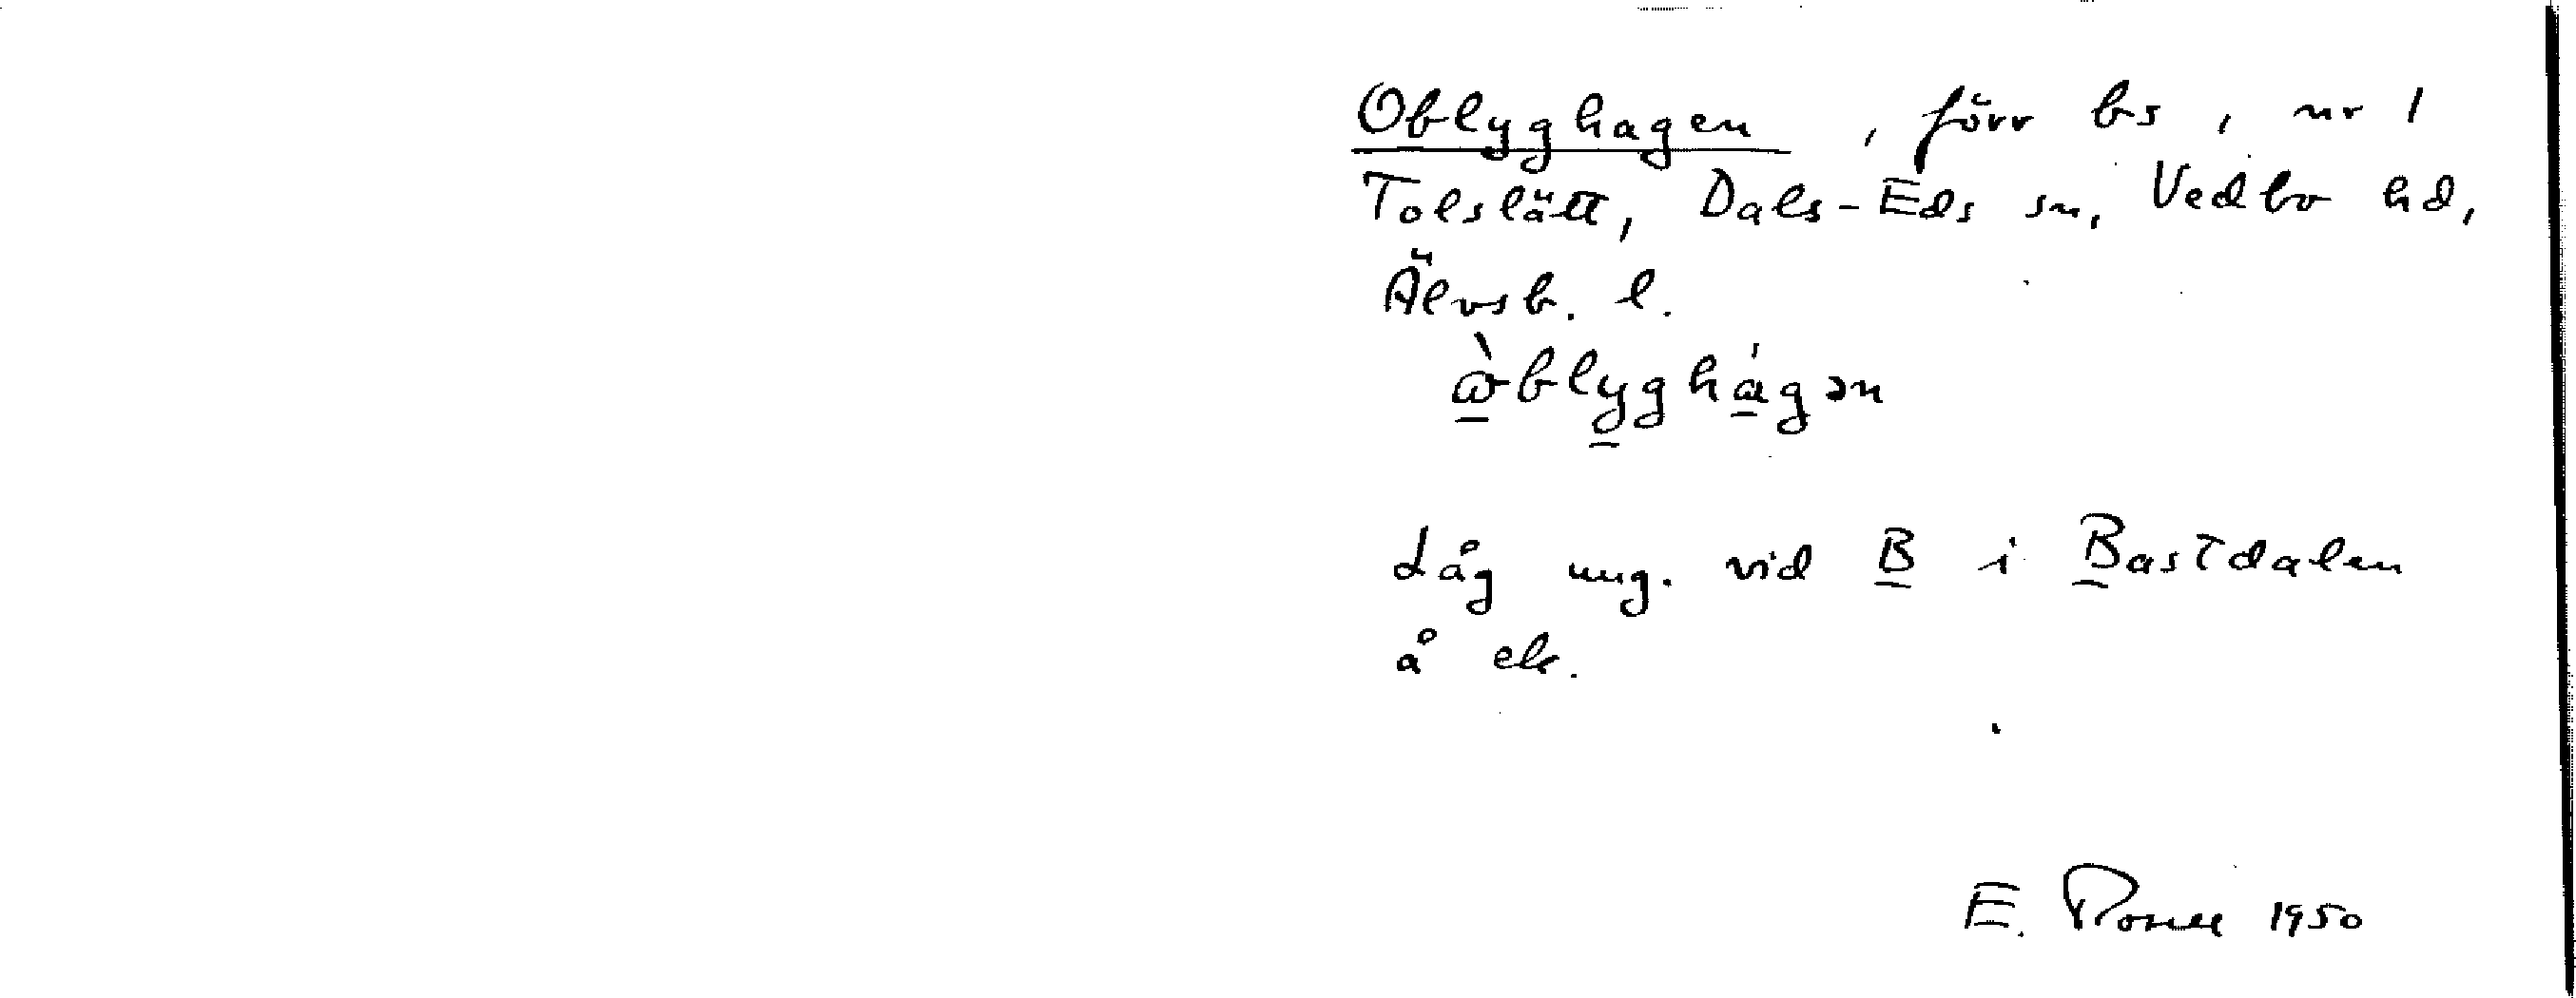 Oblyghagen, förr bs, nr 1
Tolslätt, Dals-Eds sn, Vedbo hd,
Älvsb. l.
ὼblyghágən
Låg ung. vid B i Bastdalen
å ek.
E. Rosell 1950